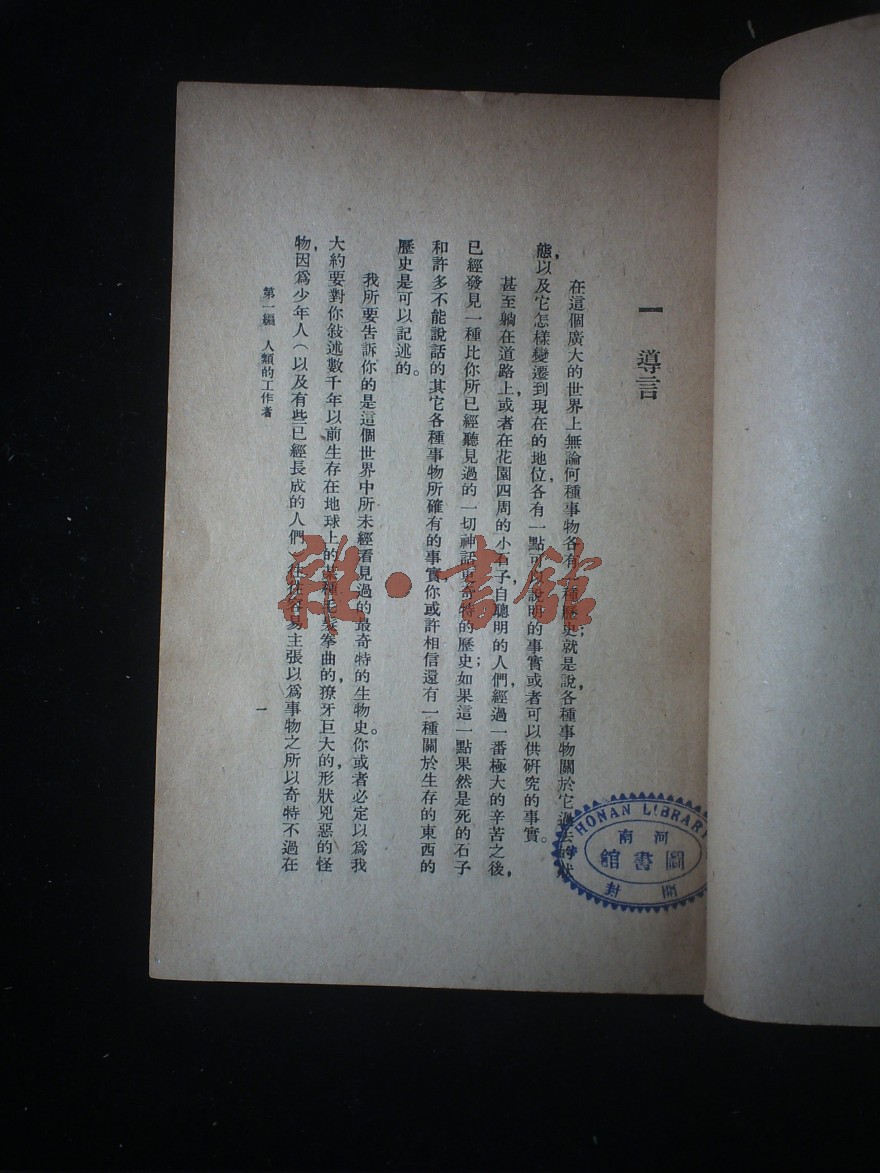 一　導言
在這個廣大的世界上無論何種事物各有一種歷史；就是說，各種事物關於它過去的狀
態，以及它怎樣變遷到現在的地位，各有一點可以說明的事實或者可以供研究的事實。
甚至躺在道路上，或者在花園四周的小石子，自聰明的人們，經過一番極大的辛苦之後，
已經發見一種比你所已經聽見過的一切神話更奇特的歷史；如果這一點果然是死的石子
和許多不能說話的其它各種事物所確有的事實你或許相信還有一種關於生存的東西的
歷史是可以記述的。
我所要告訴你的是這個世界中所未經看見過的最奇特的生物史。你或者必定以爲我
大約要對你敍述數千年以前生存在地球上的某種毛髮拳曲的，獠牙巨大的，形狀兇惡的怪
物，因爲少年人（以及有些已經長成的人們）往往容易主張以爲事物之所以奇特不過在
第一編　人類的工作者
一
雜·書館
HONAN LIBRARY
河南
圖書館
開封